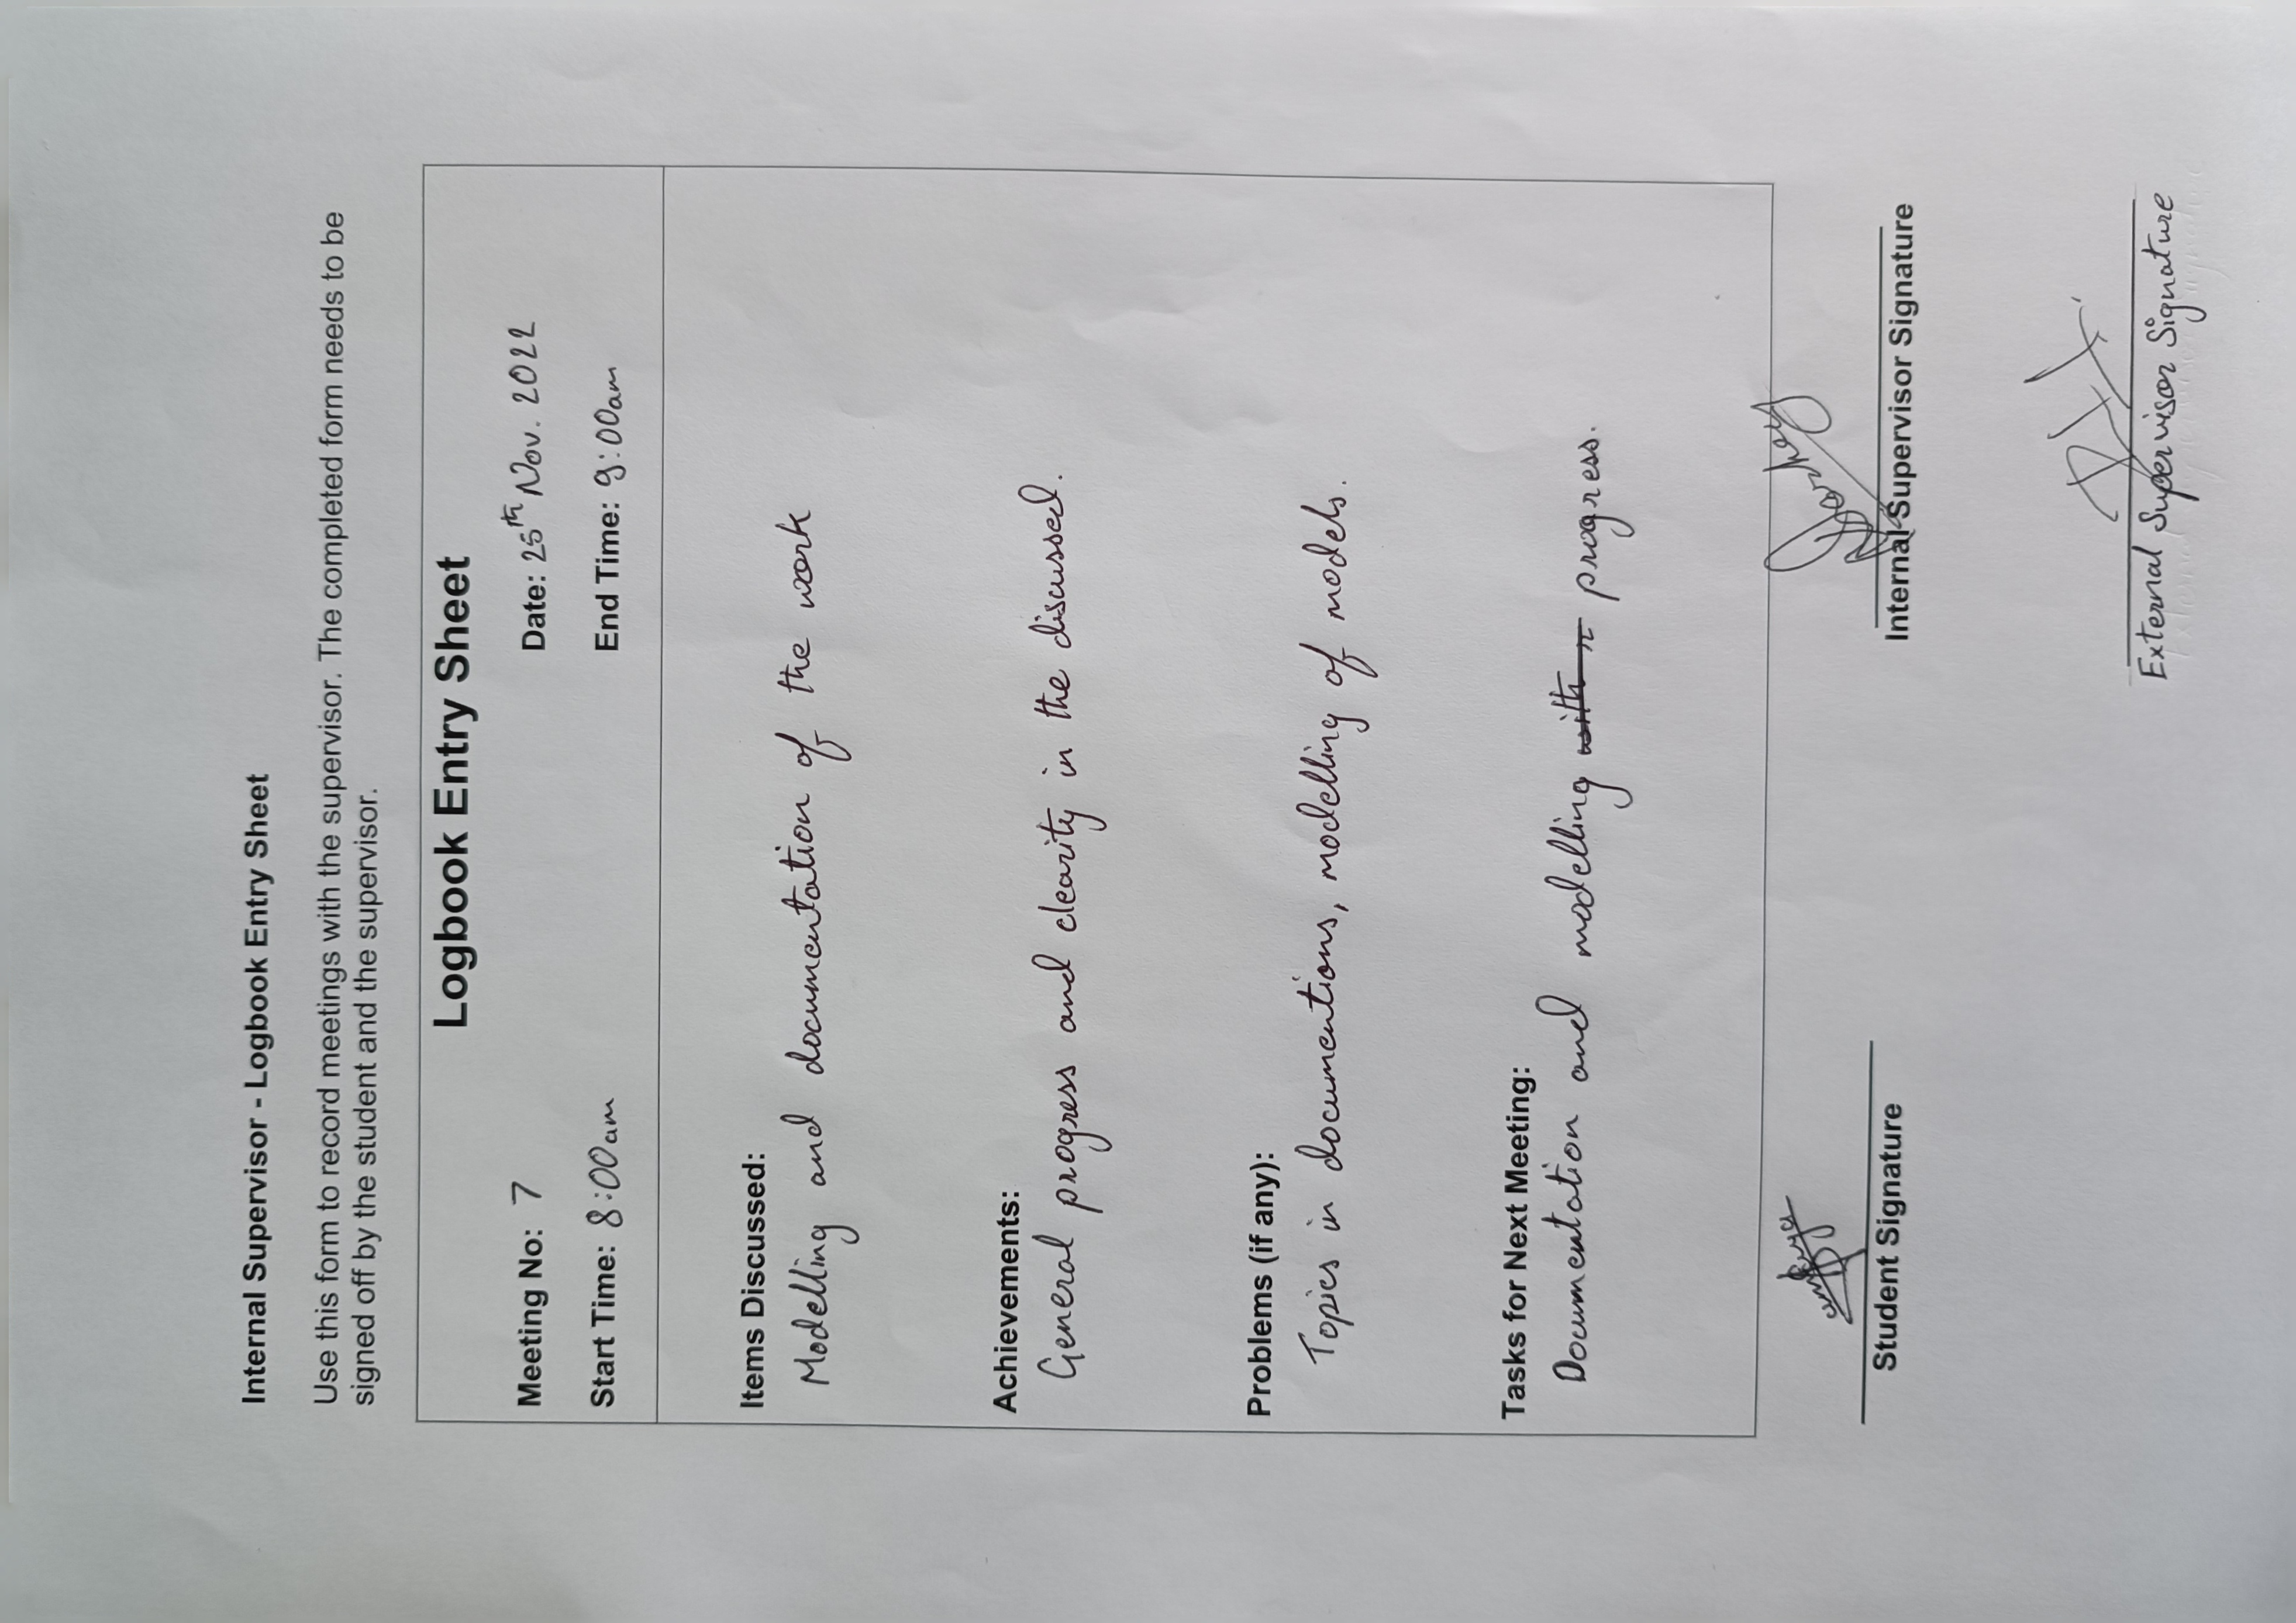 Internal Supervisor - Logbook Entry Sheet
Use this form to record meetings with the supervisor. The completed form needs to be
signed off by the student and the supervisor.
Logbook Entry Sheet
Meeting No: 7 Date: 25th Nov. 2022
Start Time: 8:00am End Time: 9:00am
Items Discussed:
Modelling and documentation of the work
Achievements:
General progress and clearity in the discussed.
Problems (if any):
Topics in documentions, modelling of models.
Tasks for Next Meeting:
Documentation and modelling progress.
Student Signature Internal Supervisor Signature
External Supervisor Signature